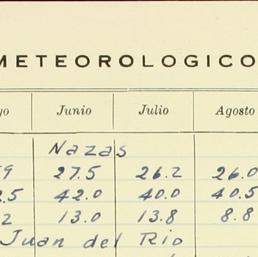 METEOROLOGICO
yo Junio Julio Agosto
Nazas
9 27.5 26.2 26.0
.5 42.0 40.0 40.5
2 13.0 13.8 8.8
Juan del Rio